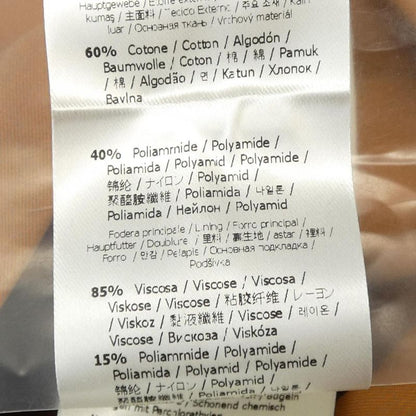 Hauptgewebe /
kumaş / 主面料 / Tecido Externo / 주요 소재 /
luar / Основная ткань / Vrchový materiál
60% Cotone / Cotton / Algodón /
Baumwolle / Coton / 棉 / 綿 / Pamuk
/ 棉 / Algodão / 면 / Katun / Хлопок /
Bavlna
40% Poliamrnide / Polyamide /
Poliamida / Polyamid / Polyamide /
锦纶 / ナイロン / Polyamid /
聚醯胺纖維 / Poliamida / 나일론 /
Poliamida / Нейлон / Polyamid
Fodera principale / Lining / Forro principal /
Hauptfutter / Doublure / 里料 / 裏生地 / astar / 裡料 /
Forro / 안감 / Pelapis / Основная подкладка /
Podšívka
85% Viscosa / Viscose / Viscosa /
Viskose / Viscose / 粘胶纤维 / レーヨン
/ Viskoz / 黏液纖維 / Viscose / 레이온 /
Viscose / Вискоза / Viskóza
15% Poliamrnide / Polyamide /
Poliamida / Polyamid / Polyamide /
锦纶 / ナイロン / Polyamid /
聚醯胺纖維 / Poliamida / 나일론 /
Schonend chemisch
mit Perchlorathylen